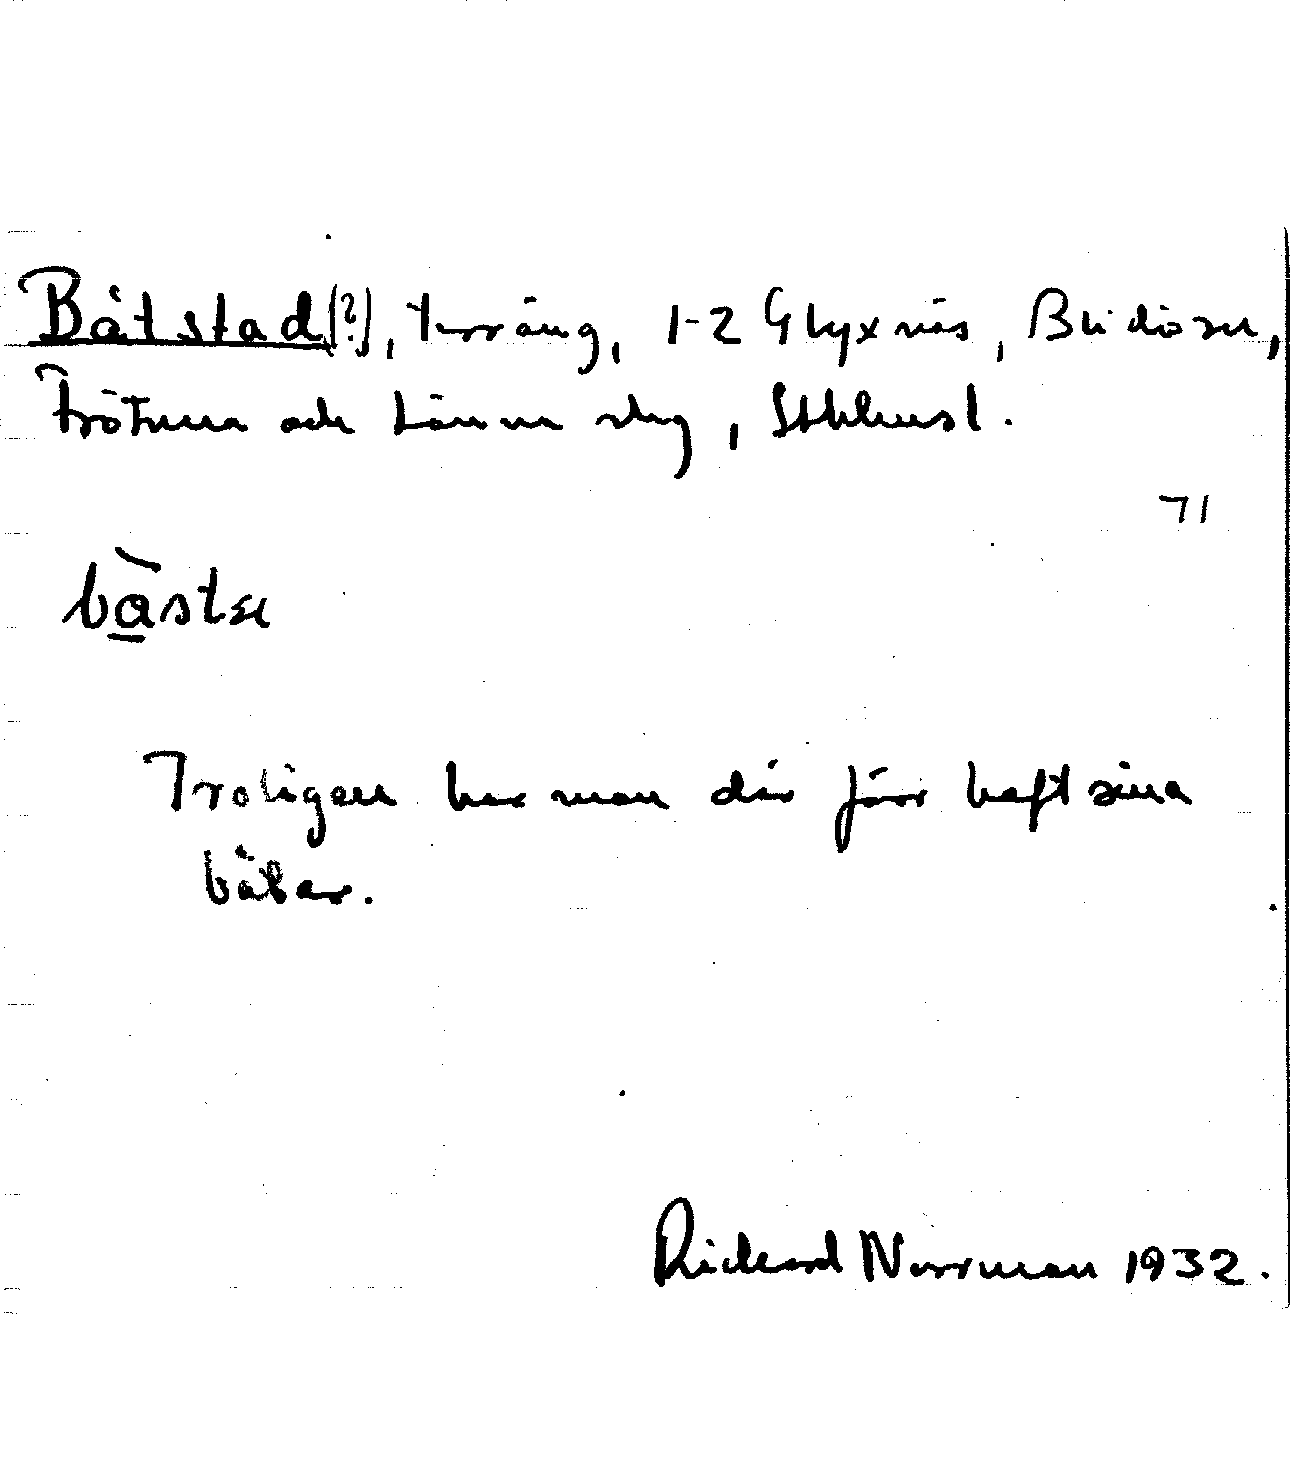 Båtstad(?), terräng, 1-2 Glyxnäs, Blidö sn,
Frötuna och Länna skg, Sthlmsl.
71
bàstɑ
Troligen har man där förr haft sina
båtar.
Rickard Norrman 1932.